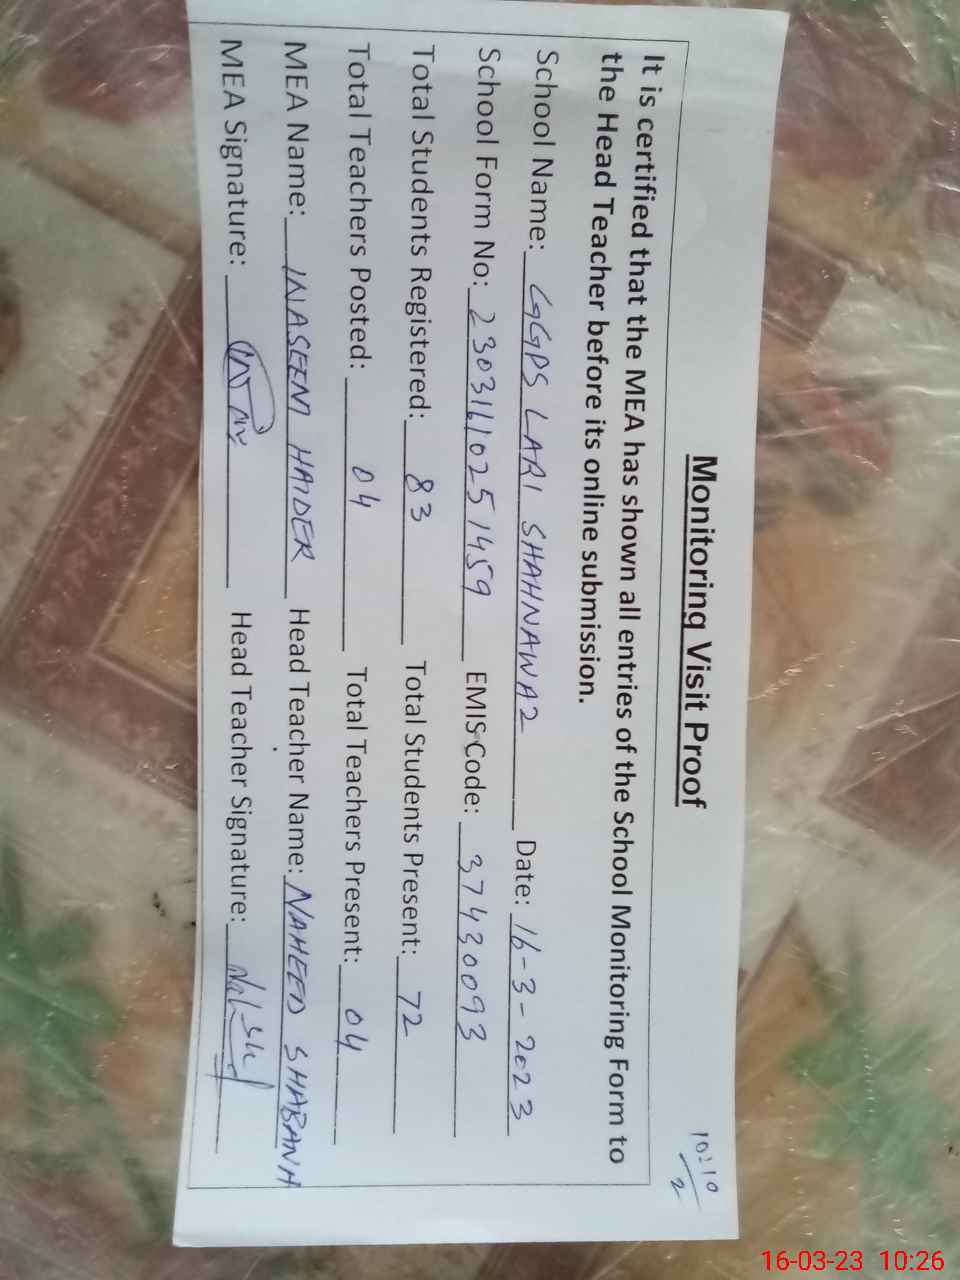 Monitoring Visit Proof
10:10
2
It is certified that the MEA has shown all entries of the School Monitoring Form to
the Head Teacher before its online submission.
School Name: GGPS LARI SHAHNAWAZ Date: 16-3-2023
School Form No: 2303161025 1459 EMIS Code: 37430093
Total Students Registered: 83 Total Students Present: 72
Total Teachers Posted: 04 Total Teachers Present: 04
MEA Name: NASEEM HAIDER Head Teacher Name: NAHEED SHABANA
MEA Signature: Head Teacher Signature:
16-03-23 10:26